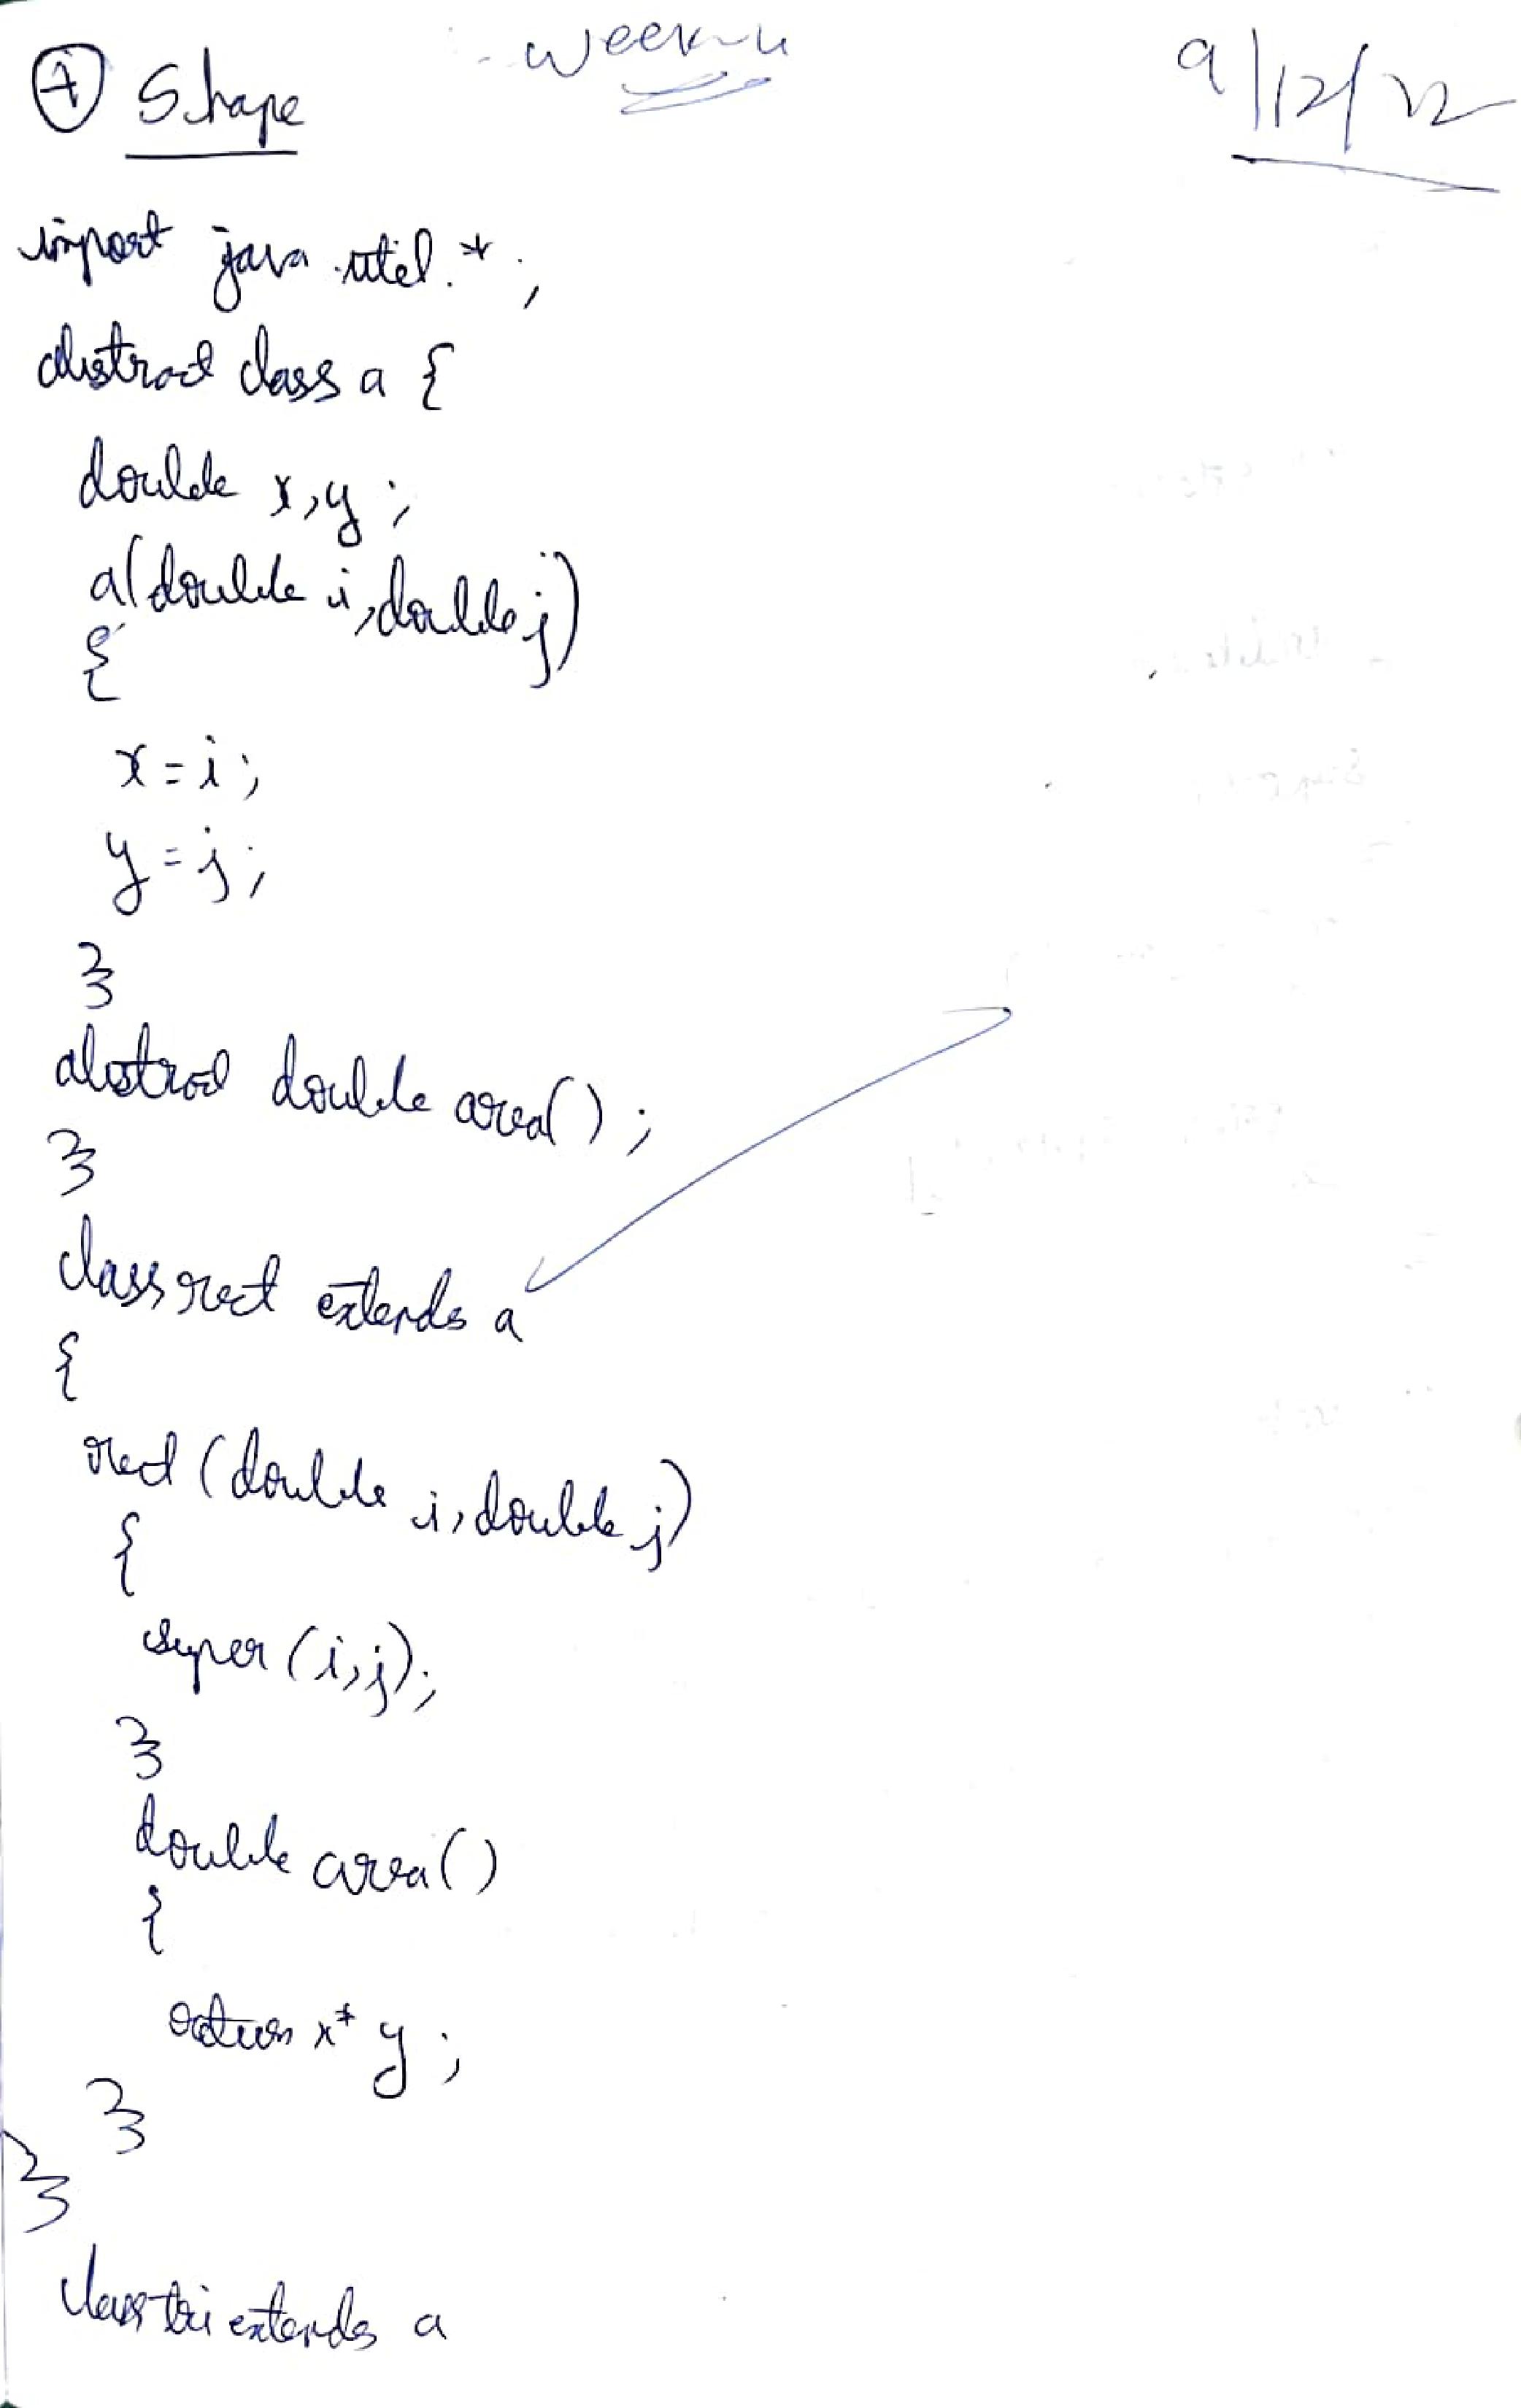 Week-4
9/12/22
4 Shape
import java.util.*;
abstract class a {
double x,y;
a(double i, double j)
{
x=i;
y=j;
}
abstract double area();
}
class rect extends a
{
rect (double i, double j)
{
super (i,j);
}
double area()
{
return x* y;
}
}
class tri extends a